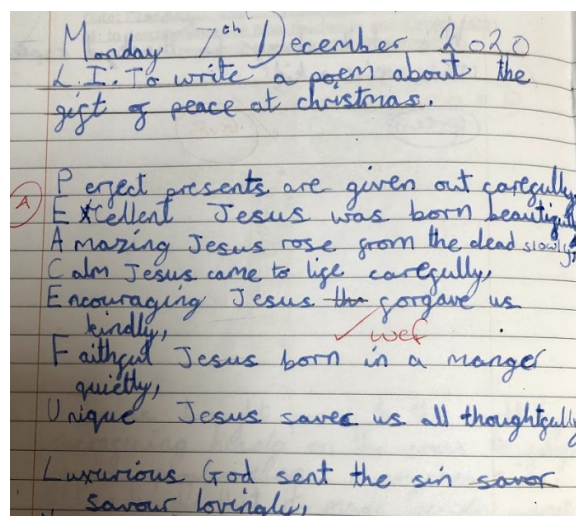 Monday 7th December 2020
L.I. To write a poem about the
gift of peace at christmas.
Perfect presents are given out carefully,
A
Excellent Jesus was born beautifully
Amazing Jesus rose from the dead slowly,
Calm Jesus came to life carefully,
Encouraging Jesus the forgave us
kindly,
wef
Faithful Jesus born in a manger
quietly,
Unique Jesus saves us all thoughtfully
Luxurious God sent the sin savor
savour lovingly,